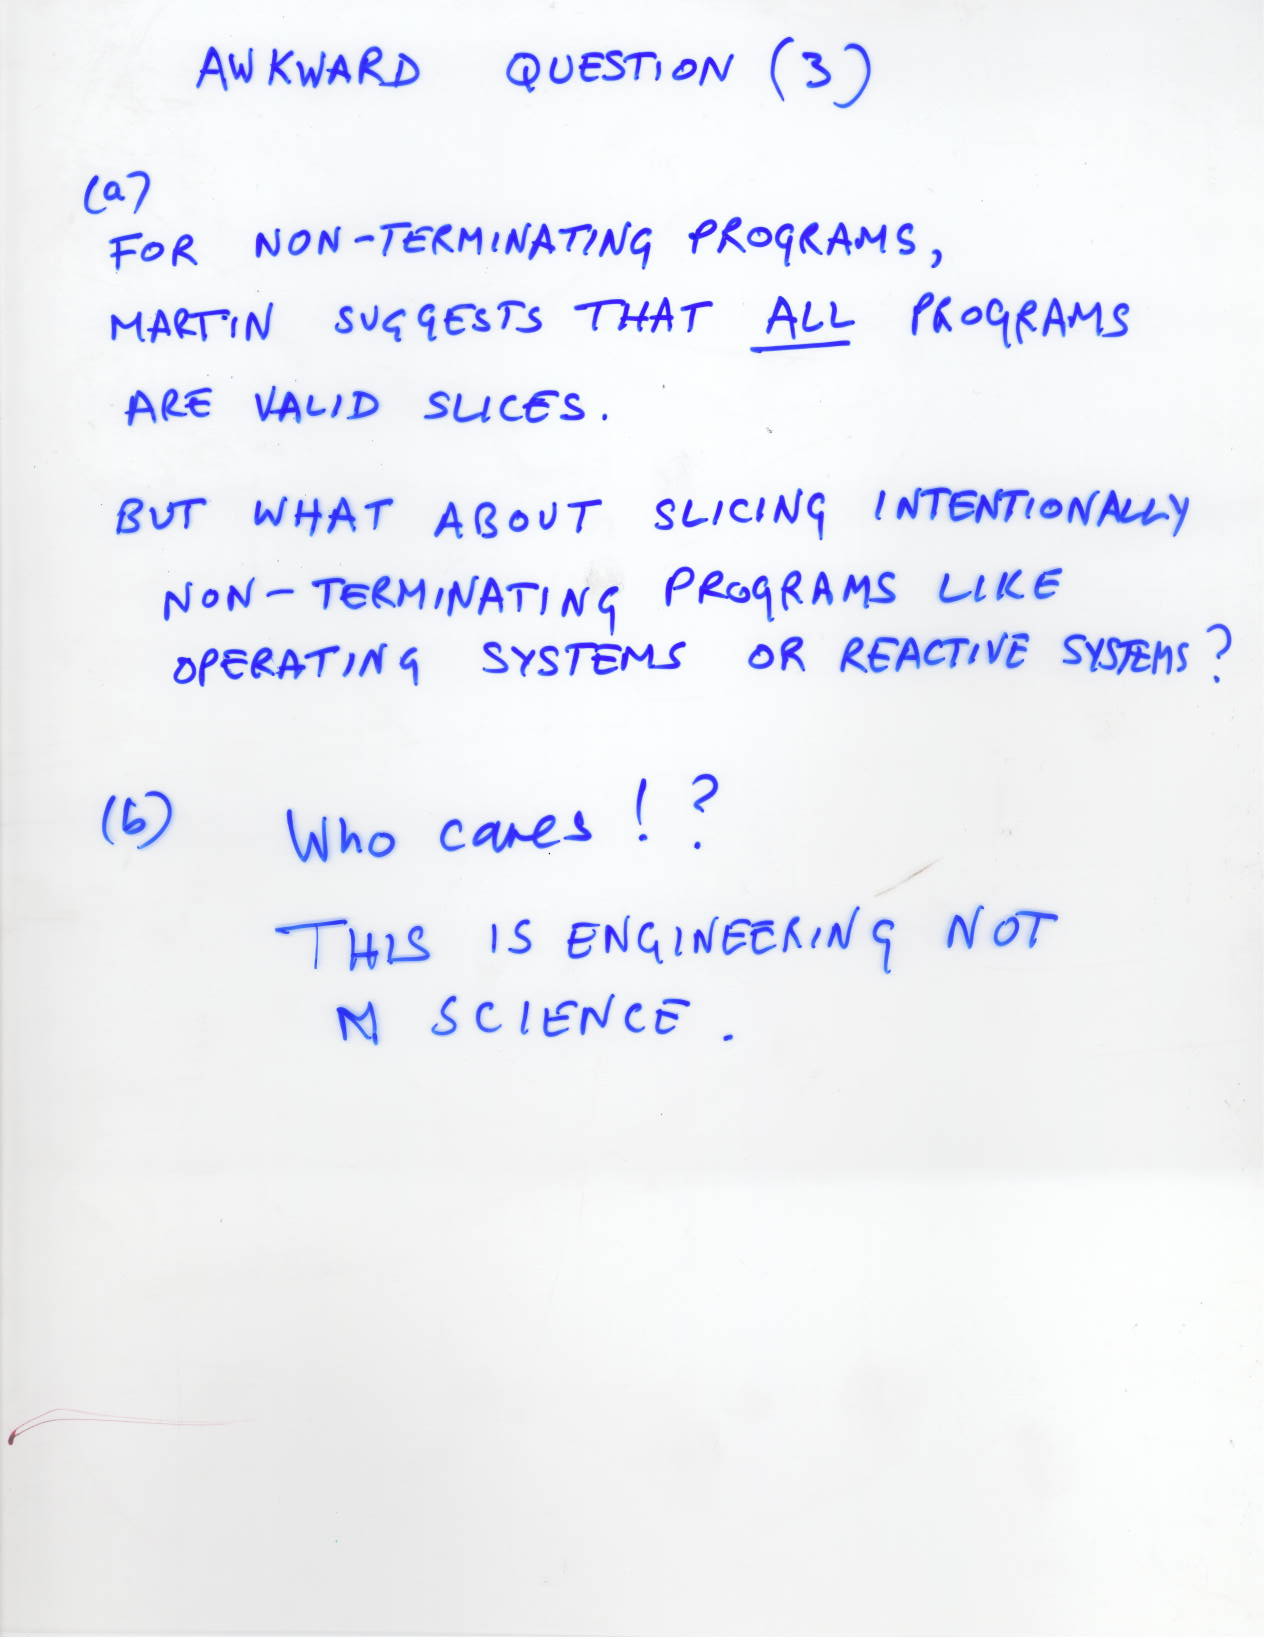 AWKWARD QUESTION (3)
(a)
FOR NON-TERMINATING PROGRAMS,
MARTIN SUGGESTS THAT ALL PROGRAMS
ARE VALID SLICES.
BUT WHAT ABOUT SLICING INTENTIONALLY
NON-TERMINATING PROGRAMS LIKE
OPERATING SYSTEMS OR REACTIVE SYSTEMS?
(b) Who cares!?
THIS IS ENGINEERING NOT
SCIENCE.